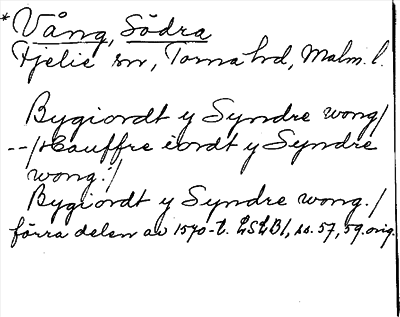 * Vång, Södra
Fjelie sn, Torna hd, Malm. l.
Bygiordt y Syndre wong/
--/Hauffre iordt y Syndre
wong./
Bygiordt y Syndre wong./
förra delen av 1570-t. LSLB1, ss. 57, 59. orig.